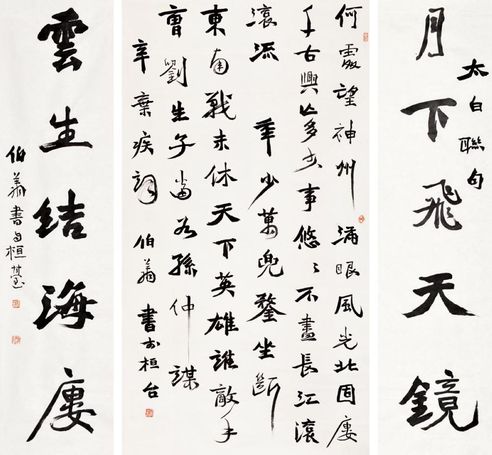 月下飛天鏡
太白聯句
何處望神州滿眼風光北固廔
千古興亡多少事悠〻不盡長江滾
滾流年少萬兜鍪坐斷
東南戰未休天下英雄誰敵手
曹劉生子當如孫仲謀
辛棄疾詞伯翁書於桓台
雲生結海廔
伯翁書於桓臺